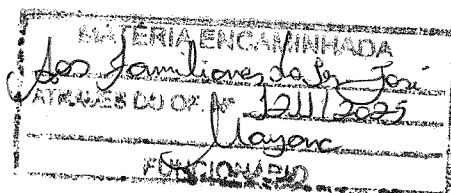 MATÉRIA ENCAMINHADA
Aos Familiares do Sr. José
ATRAVÉS DO OF. Nº 1211/2025
Mayane
FUNCIONÁRIO